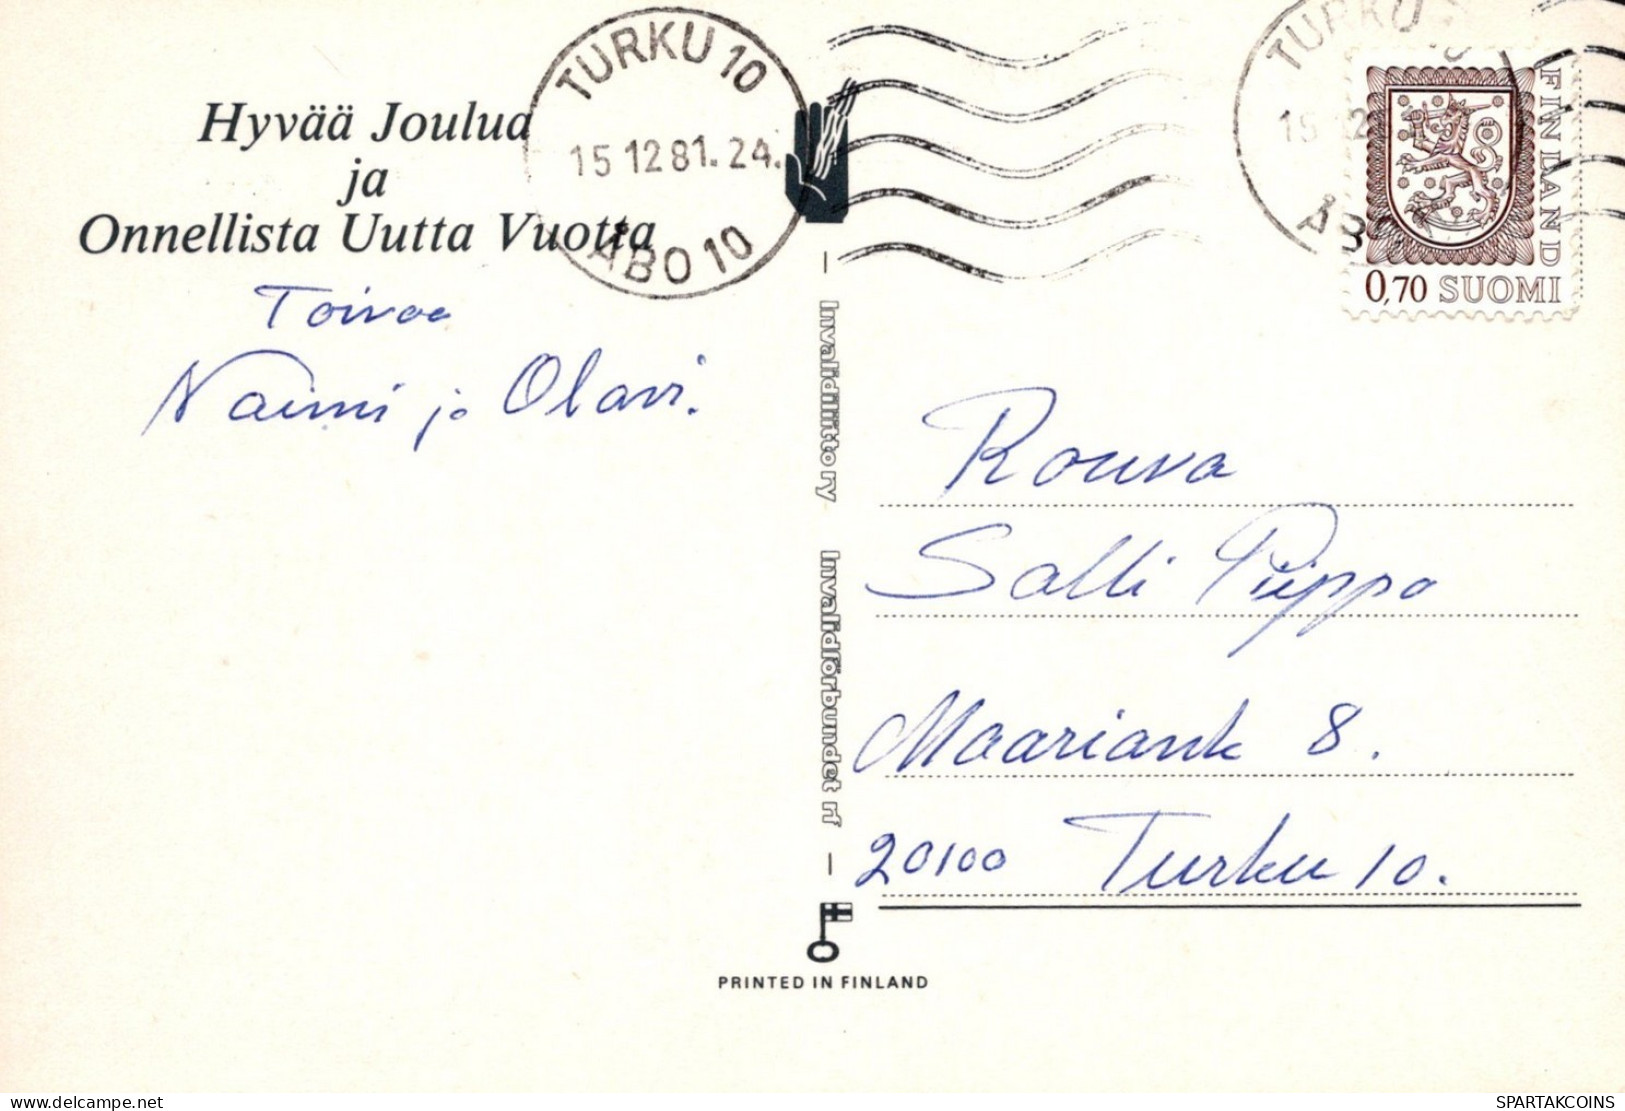 TURKU 10
15 12 81. 24.
ÅBO 10
TURKU 10
FINLAND
0,70 SUOMI
Hyvää Joulua
ja
Onnellista Uutta Vuotta
Toivoo
Naimi ja Olavi.
Invalidiliitto ry
Invalidförbundet rf
Rouva
Salli Piippo
Maariank 8.
20100 Turku 10.
PRINTED IN FINLAND
delcampe.net
SPARTAKCOINS